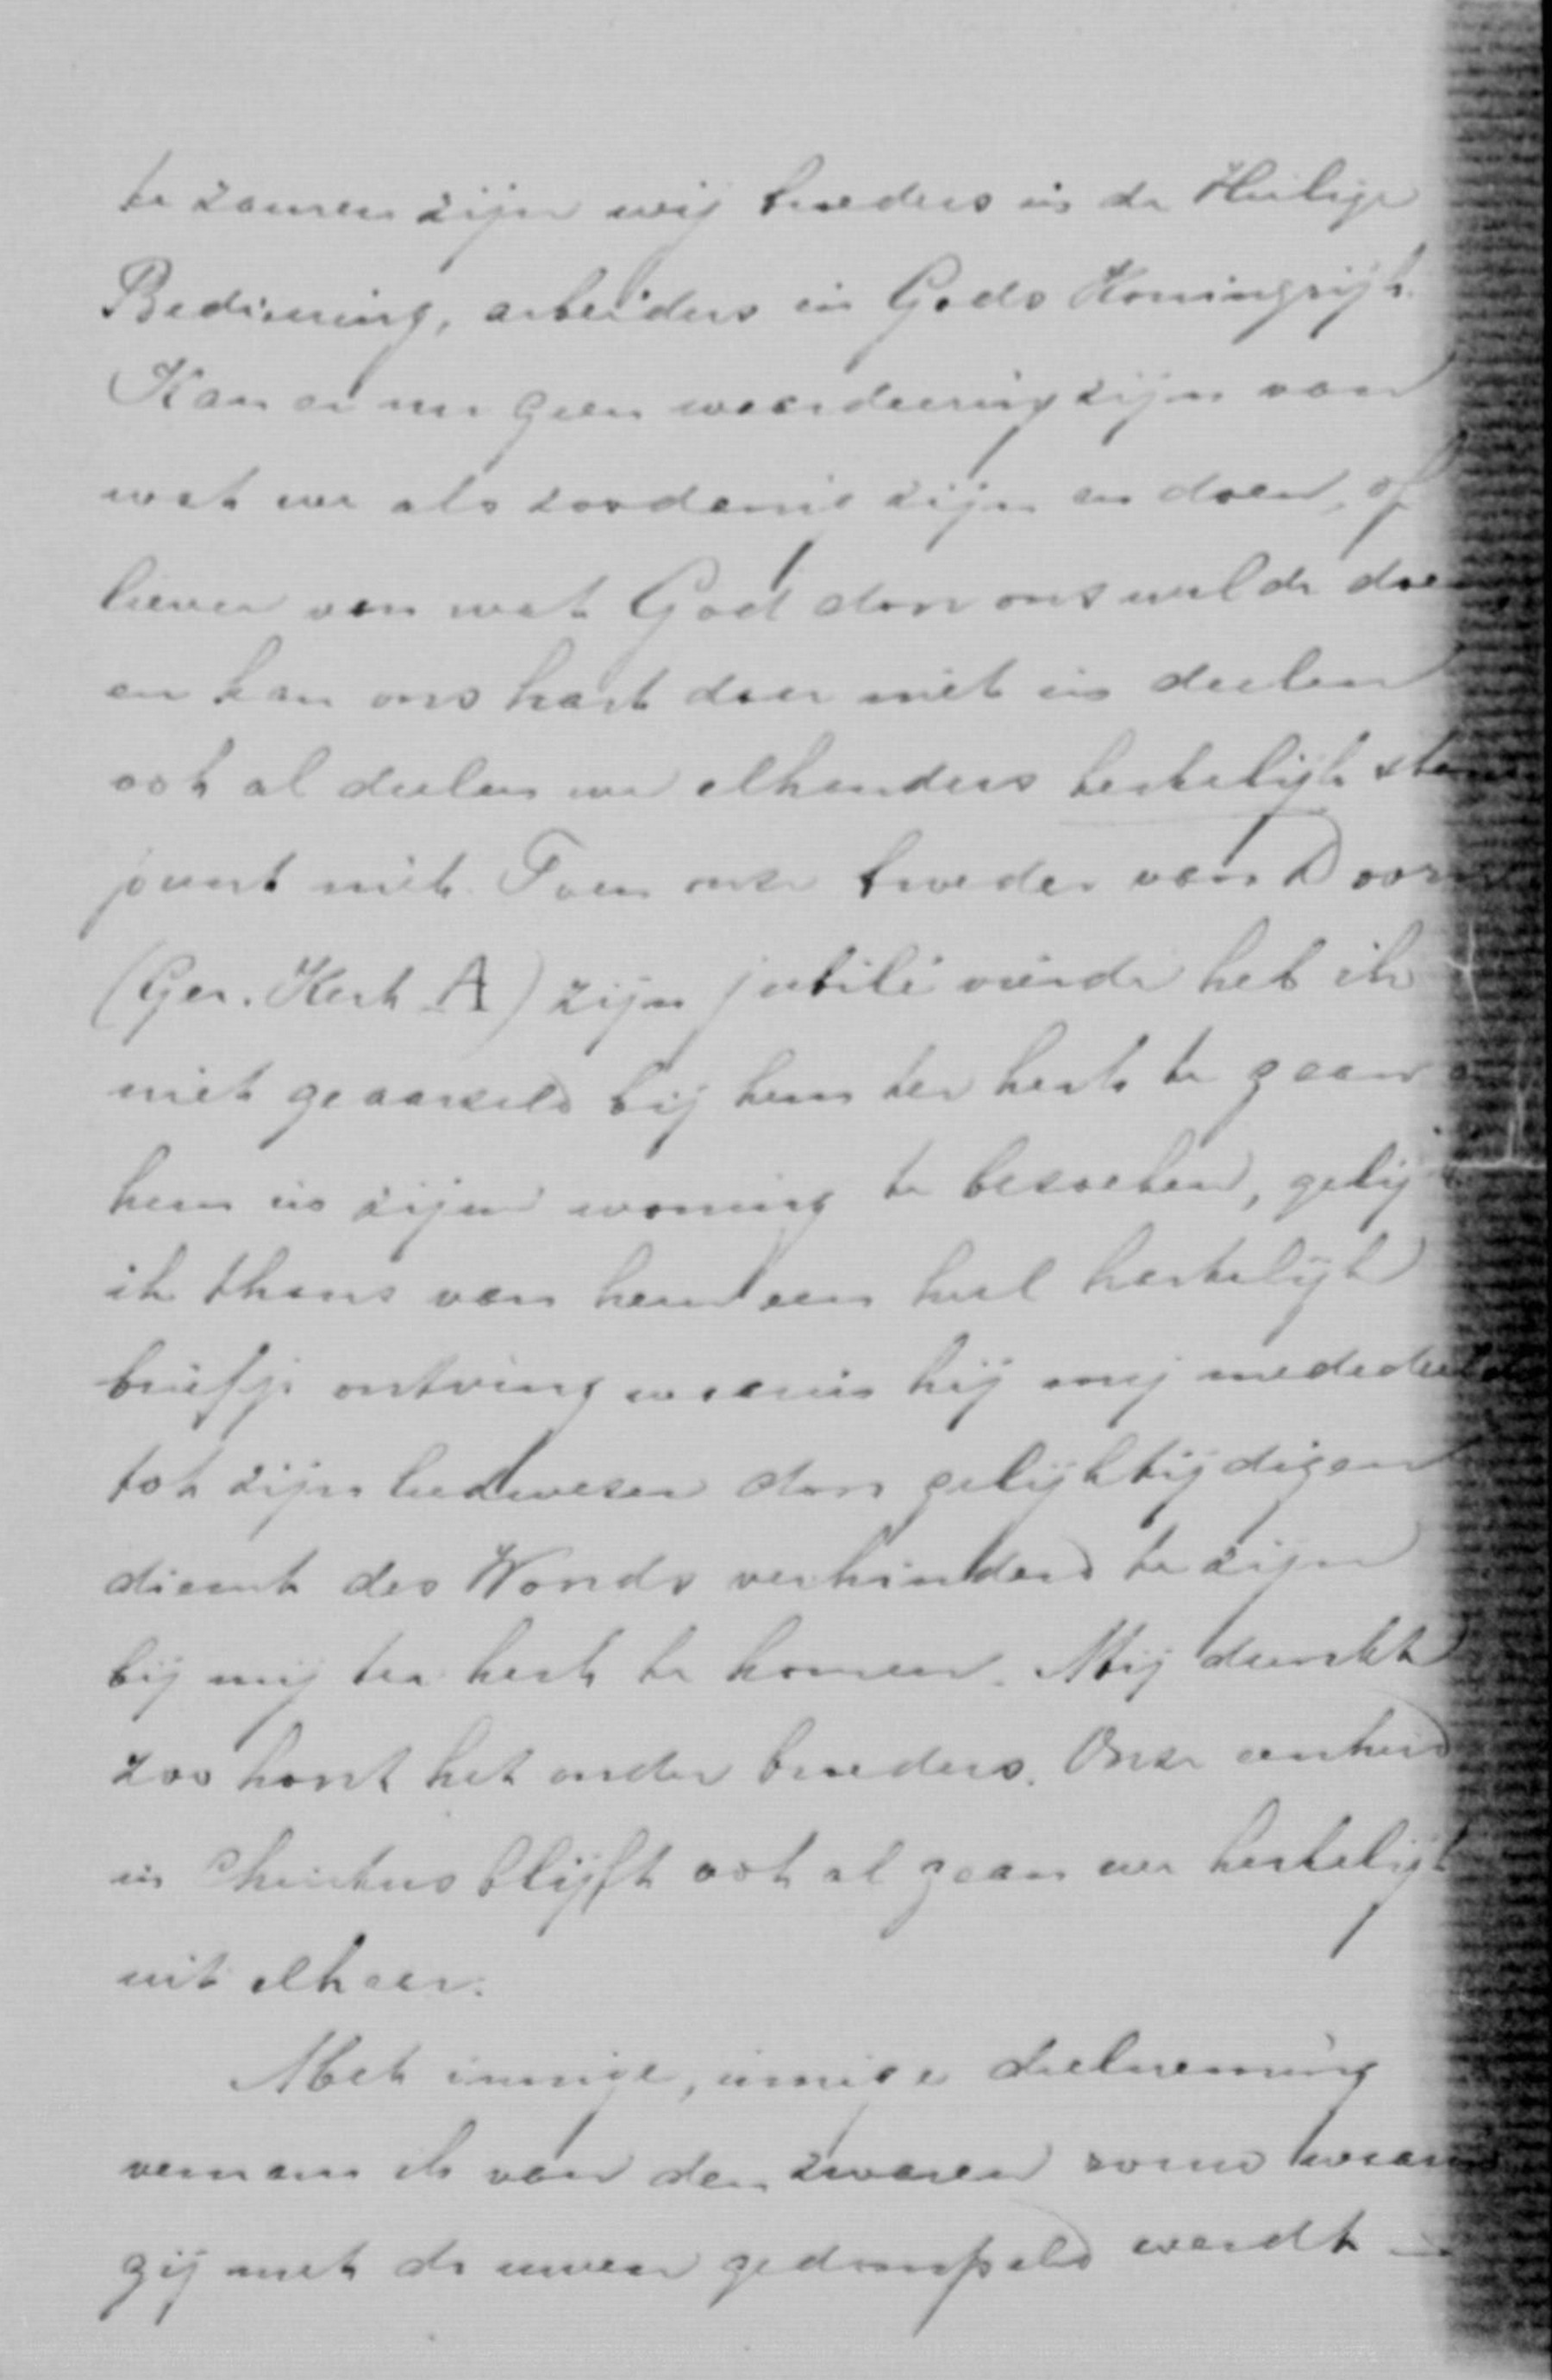 te zamen zijn wij broeders in de Heilige
Bediening, arbeiders in Gods Koningrijk.
Kan er nu geen waardeering zijn van
wat we als zoodanig zijn en doen, of
liever van wat God door ons wilde doen
en kan ons hart daar niet in deelen
ook al deelen we elkanders kerkelijk stand
punt niet. Toen onze broeder van Doorn
(Ger. Kerk A) zijn jubilé vierde heb ik
niet geaarzeld bij hem ter kerk te gaan
hem in zijne woning te bezoeken, gelijk
ik thans van hem een heel hartelijk
briefje ontving waarin hij mij mededeelde
tot zijn leedwezen door gelijktijdigen
dienst des Woords verhinderd te zijn
bij mij ter kerk te komen. Mij dunkt
zoo hoort het onder broeders. Onze eenheid
in Christus blijft ook al gaan we kerkelijk
uit elkaar.
Met innige, innige deelneming
vernam ik van den zwaren rouw waarin
gij met de uwen gedompeld werdt —